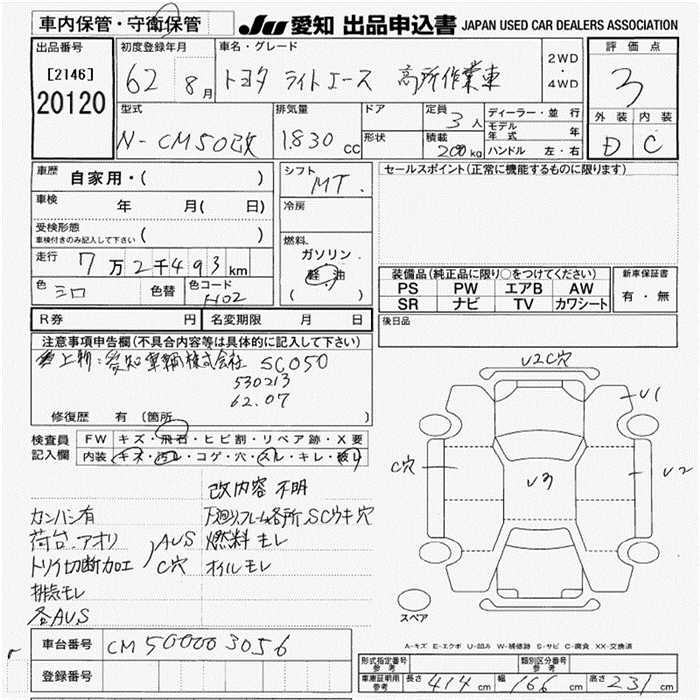 車内保管・守衛保管
JU 愛知 出品申込書 JAPAN USED CAR DEALERS ASSOCIATION
出品番号
[2146]
20120
初度登録年月
62 8月
車名・グレード
トヨタ ライトエース 高所作業車
2WD
・
4WD
評価点
3
外装 内装
D C
型式
N-CM50改
排気量
1830 cc
ドア
形状
定員
3人
積載
200kg
ディーラー・並行
モデル年式 年
ハンドル 左・右
車歴 自家用・( )
車検 年 月( 日)
受検形態
車検付きのみ記入して下さい ( )
走行 7万2千493km
色 シロ 色替 色コード H02
シフト
MT.
冷房
燃料
ガソリン
軽油
( )
セールスポイント(正常に機能するものに限ります)
装備品(純正品に限り○をつけてください)
PS PW エアB AW
SR ナビ TV カワシート
新車保証書
有・無
R券 円 名変期限 月 日
後日品
注意事項申告欄(不具合内容等は具体的に記入して下さい)
上物:愛知車輌株式会社 SC050
530213
62.07
修復歴 有(箇所
検査員記入欄
FW キズ・飛石・ヒビ割・リペア跡・X要
内装 キズ・汚レ・コゲ・穴・スレ・キレ・破レ
改内容 不明
カンバン有
下廻り、フレーム各所SCウキ穴
荷台.アオリ
AUS
燃料モレ
トリイ切断加工
C穴
オイルモレ
排気モレ
各AUS
V2C穴
V1
C穴
V3
V2
スペア
A-キズ E-エクボ U-凹み W-補修跡 S-サビ C-腐食 XX-交換済
車台番号 CM500003056
登録番号
形式指定番号
参考
類別区分番号
参考
車庫証明用
参考
長さ 414 cm 幅 166 cm 高さ 231 cm